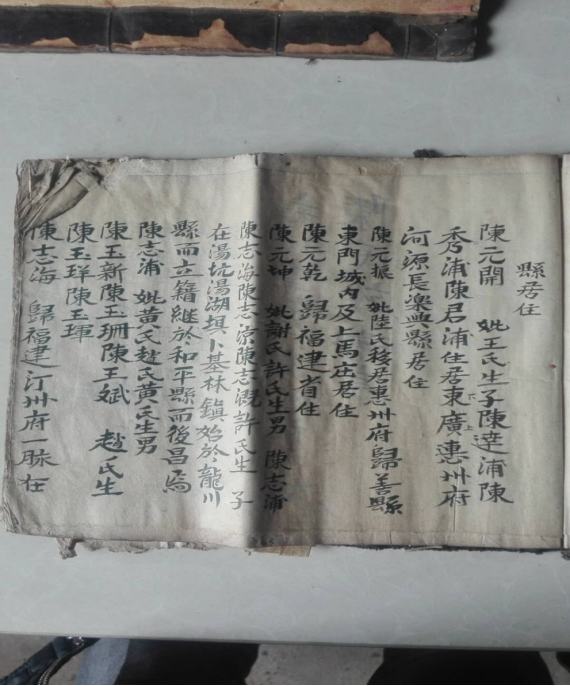 縣居住
陳元開 妣王氏生子陳達浦陳
秀浦陳君浦住居東廣惠州府
下上
河源長樂興縣居住
陳元振 妣陸氏移居惠州府歸善縣
東門城內及上馬庄居住
陳元乾 歸福建省住
陳元坤 妣謝氏許氏生男 陳志浦
陳志海陳志 陳志 許氏生 子
在湯坑湯湖埧卜基林鎮始於龍川
縣而立籍継於和平縣而後昌焉
陳志浦 妣黃氏赵氏黃氏生男
陳玉新陳玉珊陳玉斌 赵氏生
陳玉珜陳玉琿
陳志海 歸福建汀州府一脉在